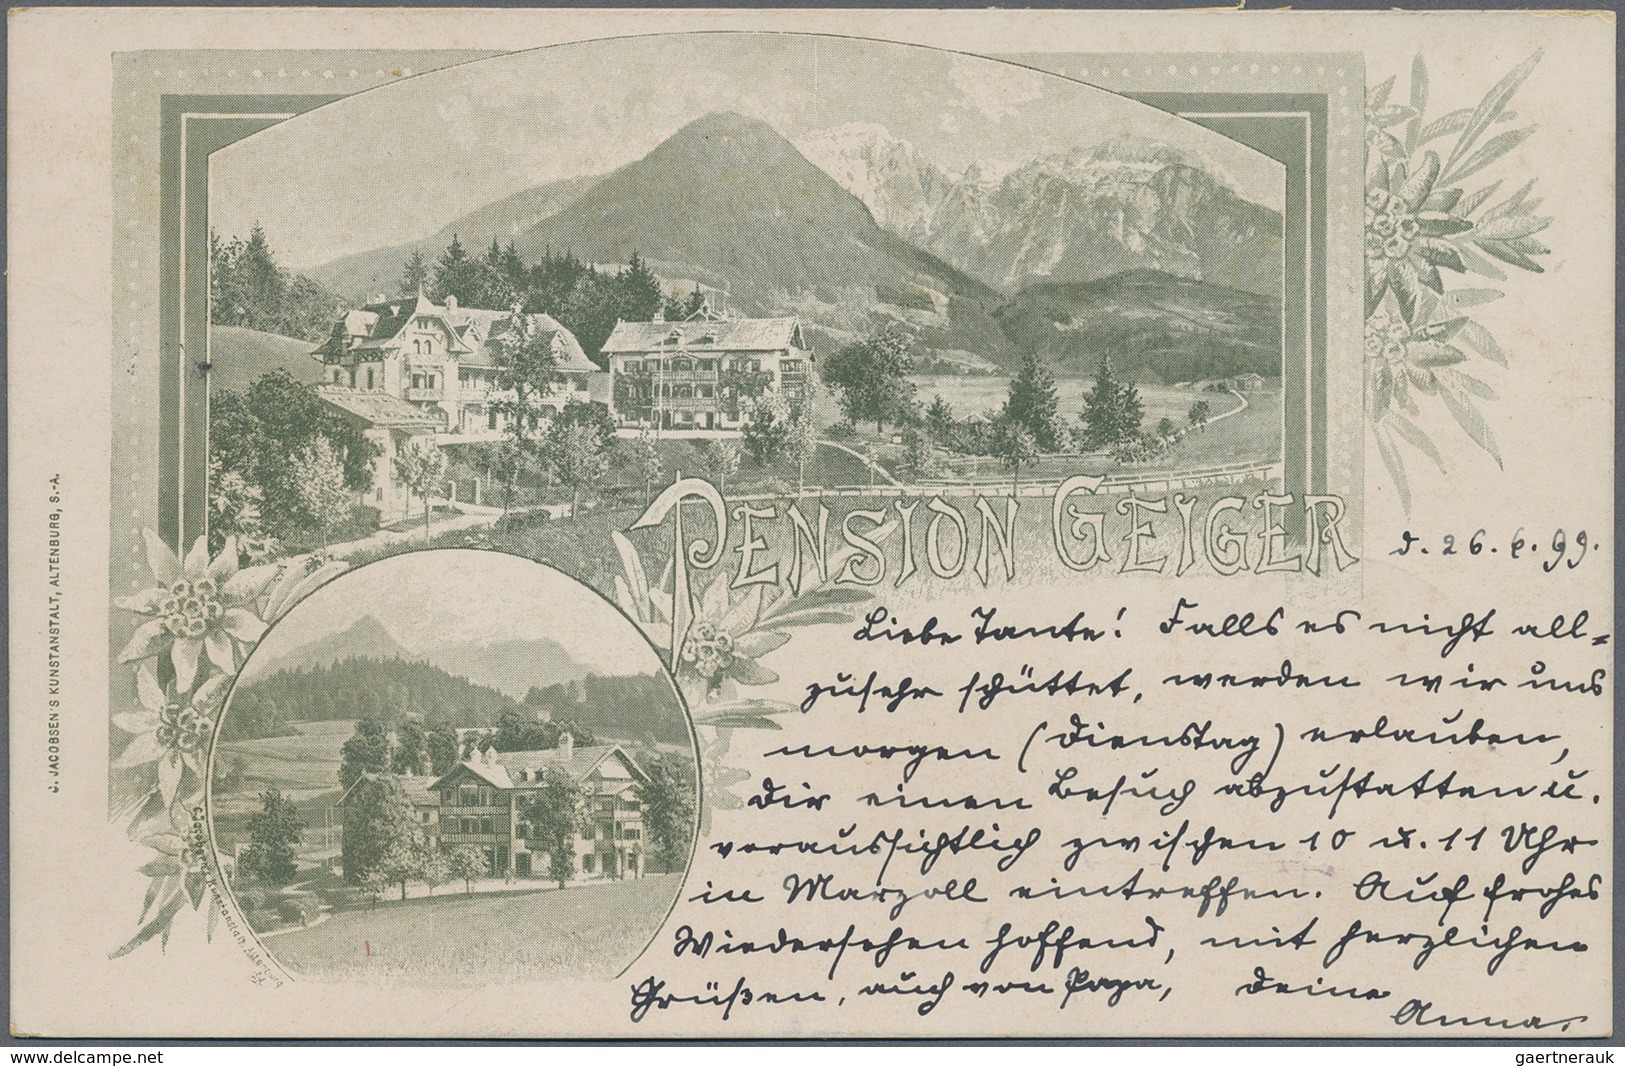 PENSION GEIGER
d. 26. 6. 99.
Liebe Tante! Falls es nicht all=
zusehr schüttet, werden wir uns
morgen (Dienstag) erlauben,
Dir einen Besuch abzustatten u.
voraussichtlich zwischen 10 u. 11 Uhr
in Marzoll eintreffen. Auf frohes
Wiedersehen hoffend, mit herzlichen
Grüßen, auch von Papa, Deine
Anna.
J. JACOBSEN'S KUNSTANSTALT, ALTENBURG, S.-A.
delcampe.net
gaertnerauk